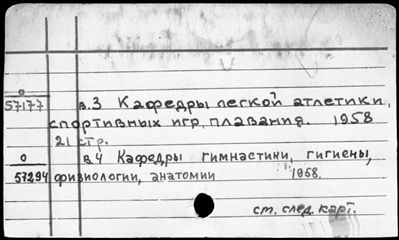 0
57177 в.3 Кафедры легкой атлетики,
спортивных игр, плавания. 1958
21 стр.
0 в.4 Кафедры гимнастики, гигиены,
57294 физиологии, анатомии 1958.
см. след. карт.